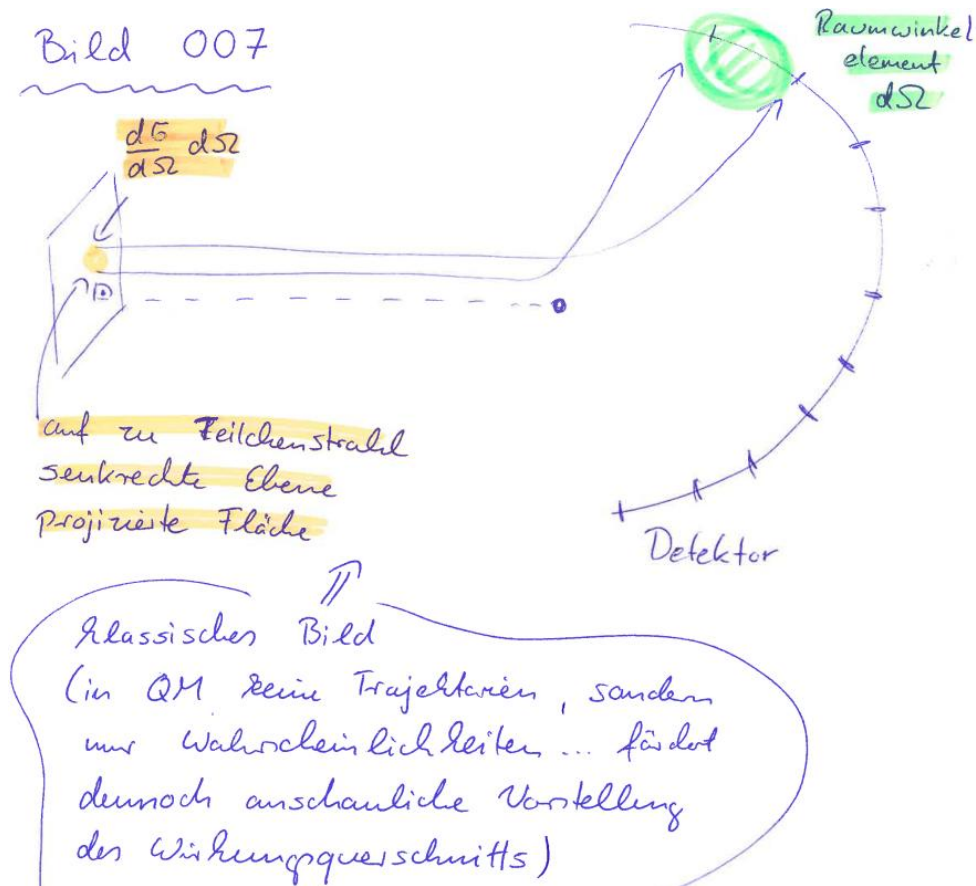 Bild 007
Raumwinkel
element
dΩ
dσ/dΩ dΩ
auf zu Teilchenstrahl
senkrechte Ebene
projizierte Fläche
Detektor
klassisches Bild
(in QM keine Trajektorien, sondern
nur Wahrscheinlichkeiten... fördert
dennoch anschauliche Vorstellung
des Wirkungsquerschnitts)